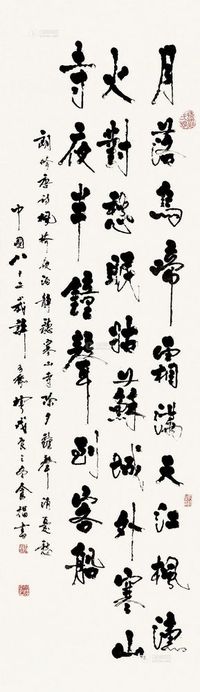 月落烏啼霜滿天江楓漁
火對愁眠姑蘇城外寒山
寺夜半鐘聲到客船
唐诗楓桥夜泊静聽寒山寺除夕鐘聲消憂愁
中國八十二歲